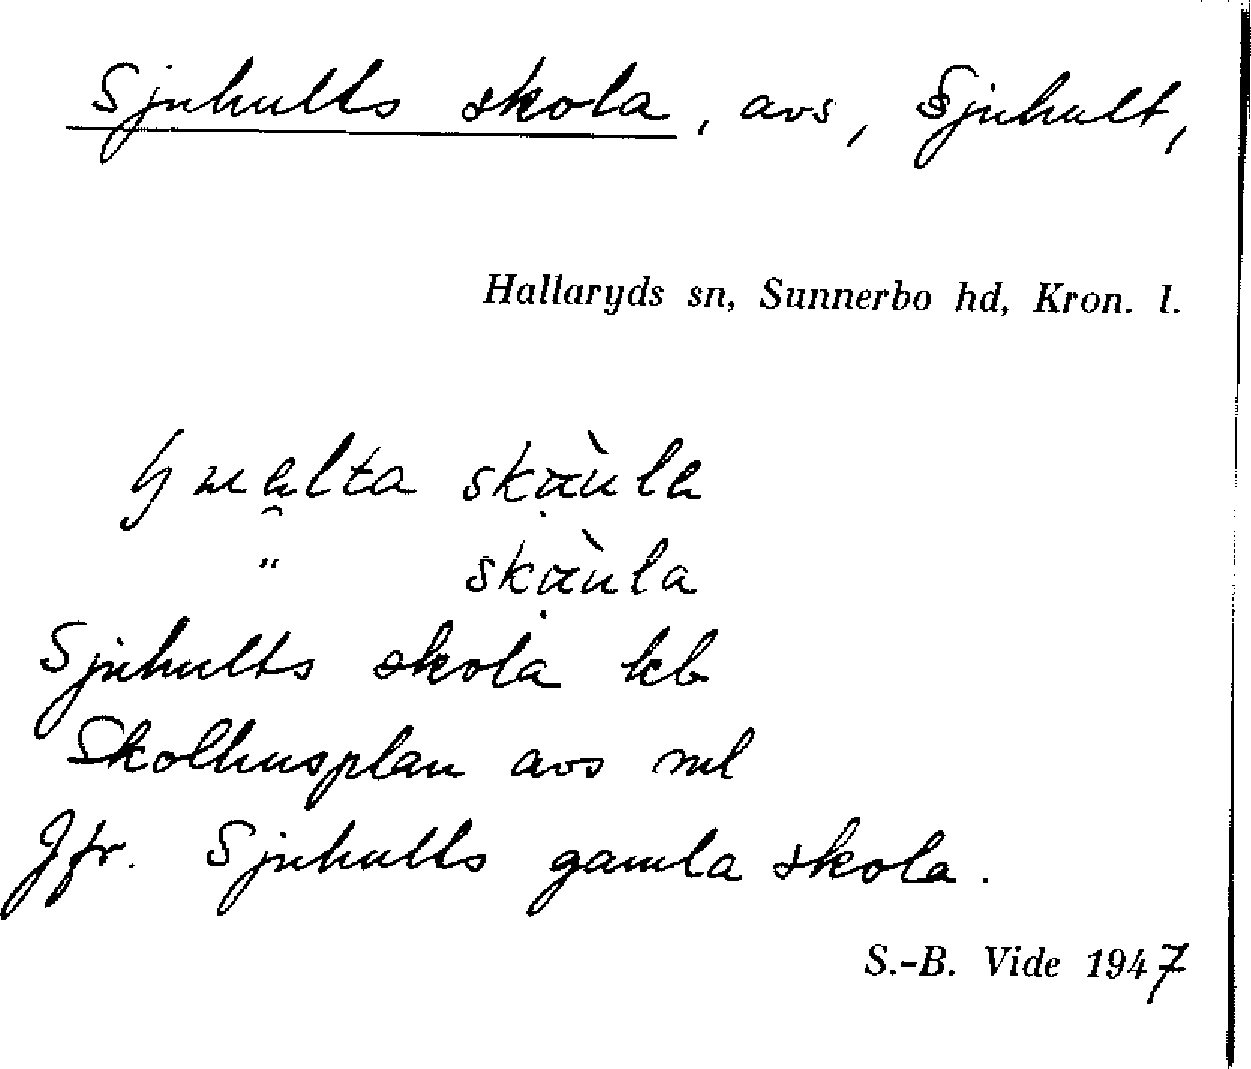 Sjuhults skola, avs, Sjuhult,
Hallaryds sn, Sunnerbo hd, Kron. l.
" skæ̣̀ula
Sjuhults skola kb
Skolhusplan avs ml
Jfr. Sjuhults gamla skola.
S.-B. Vide 1947